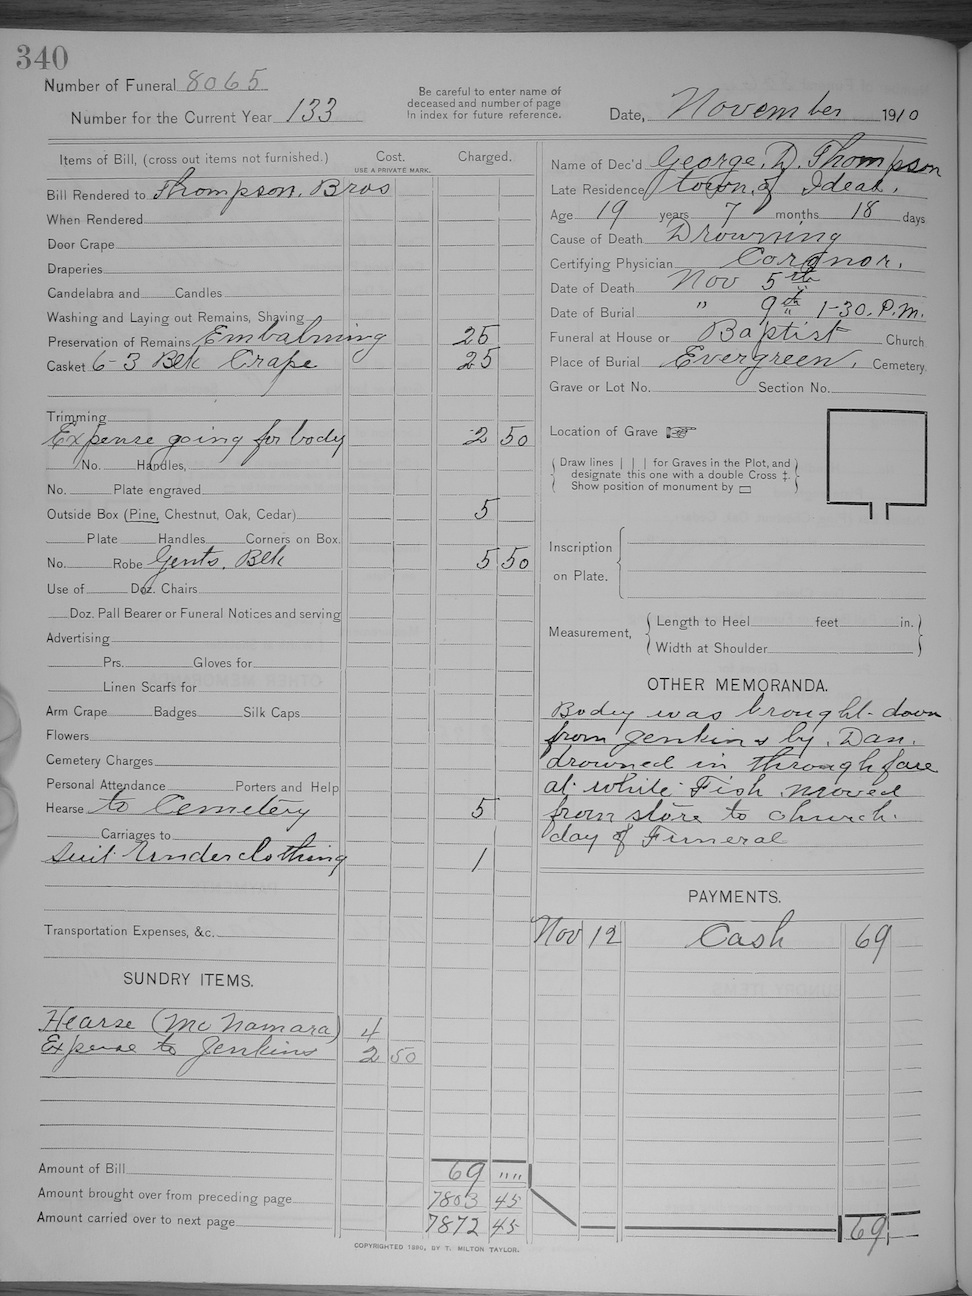 340
Number of Funeral 8065
Number for the Current Year 133
Be careful to enter name of
deceased and number of page
In index for future reference.
Date, November 1910
Items of Bill, (cross out items not furnished.) Cost. Charged.
USE A PRIVATE MARK.
Bill Rendered to Thompson. Bros
When Rendered
Door Crape
Draperies
Candelabra and Candles
Washing and Laying out Remains, Shaving
Preservation of Remains Embalming 25
Casket 6-3 Blk Crape 25
Trimming
Expense going for body 2 50
No. Handles,
No. Plate engraved
Outside Box (Pine, Chestnut, Oak, Cedar) 5
Plate Handles Corners on Box.
No. Robe Gents. Blk 5 50
Use of Doz. Chairs
Doz. Pall Bearer or Funeral Notices and serving
Advertising
Prs. Gloves for
Linen Scarfs for
Arm Crape Badges Silk Caps
Flowers
Cemetery Charges
Personal Attendance Porters and Help
Hearse to Cemetery 5
Carriages to
Suit Underclothing 1
Transportation Expenses, &c.
SUNDRY ITEMS.
Hearse (Mc Namara) 4
Expense to Jenkins 2 50
Amount of Bill 69 ""
Amount brought over from preceding page 7803 45
Amount carried over to next page 7872 45
Name of Dec'd George. D. Thompson
Late Residence town of Ideal.
Age 19 years 7 months 18 days
Cause of Death Drowning
Certifying Physician Cornor.
Date of Death Nov 5th
Date of Burial " 9th 1-30. P.M.
Funeral at House or Baptist Church
Place of Burial Evergreen. Cemetery.
Grave or Lot No. Section No.
Location of Grave ☞
Draw lines | | | for Graves in the Plot, and
designate this one with a double Cross ‡.
Show position of monument by ▭
Inscription
on Plate.
Measurement, Length to Heel feet in.
Width at Shoulder
OTHER MEMORANDA.
Bodey was brought down
from Jenkins by. Dan.
drowned in through fare
at white Fish moved
from store to church.
day of Funeral
PAYMENTS.
Nov 12 Cash 69
69
COPYRIGHTED 1890, BY T. MILTON TAYLOR.